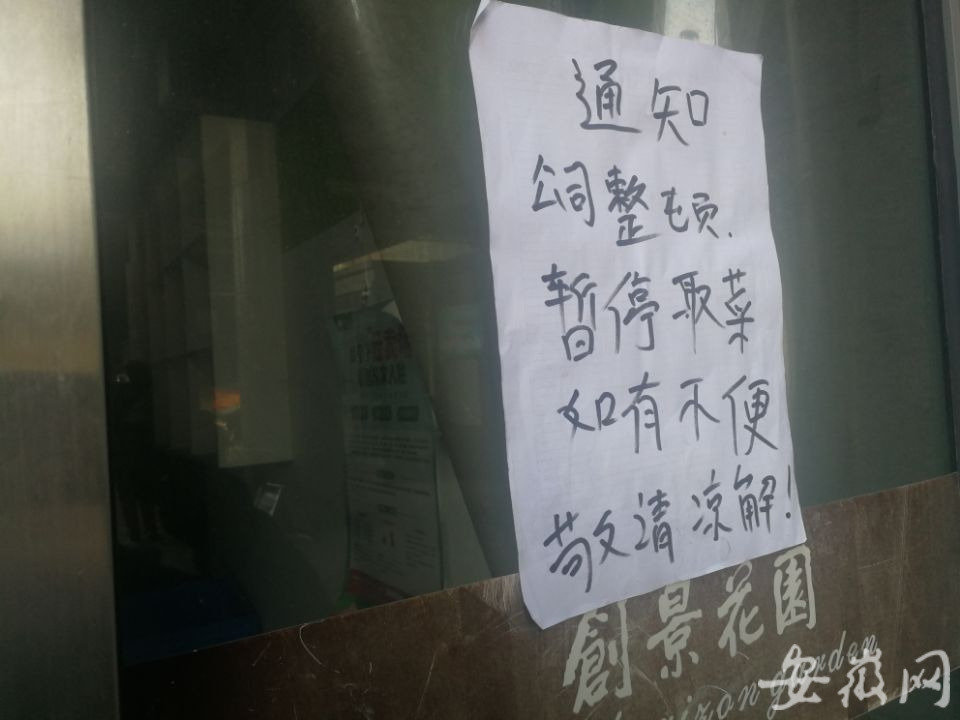 通知
公司整顿.
暂停取菜
如有不便
敬请凉解!
創景花園
garden
安徽网